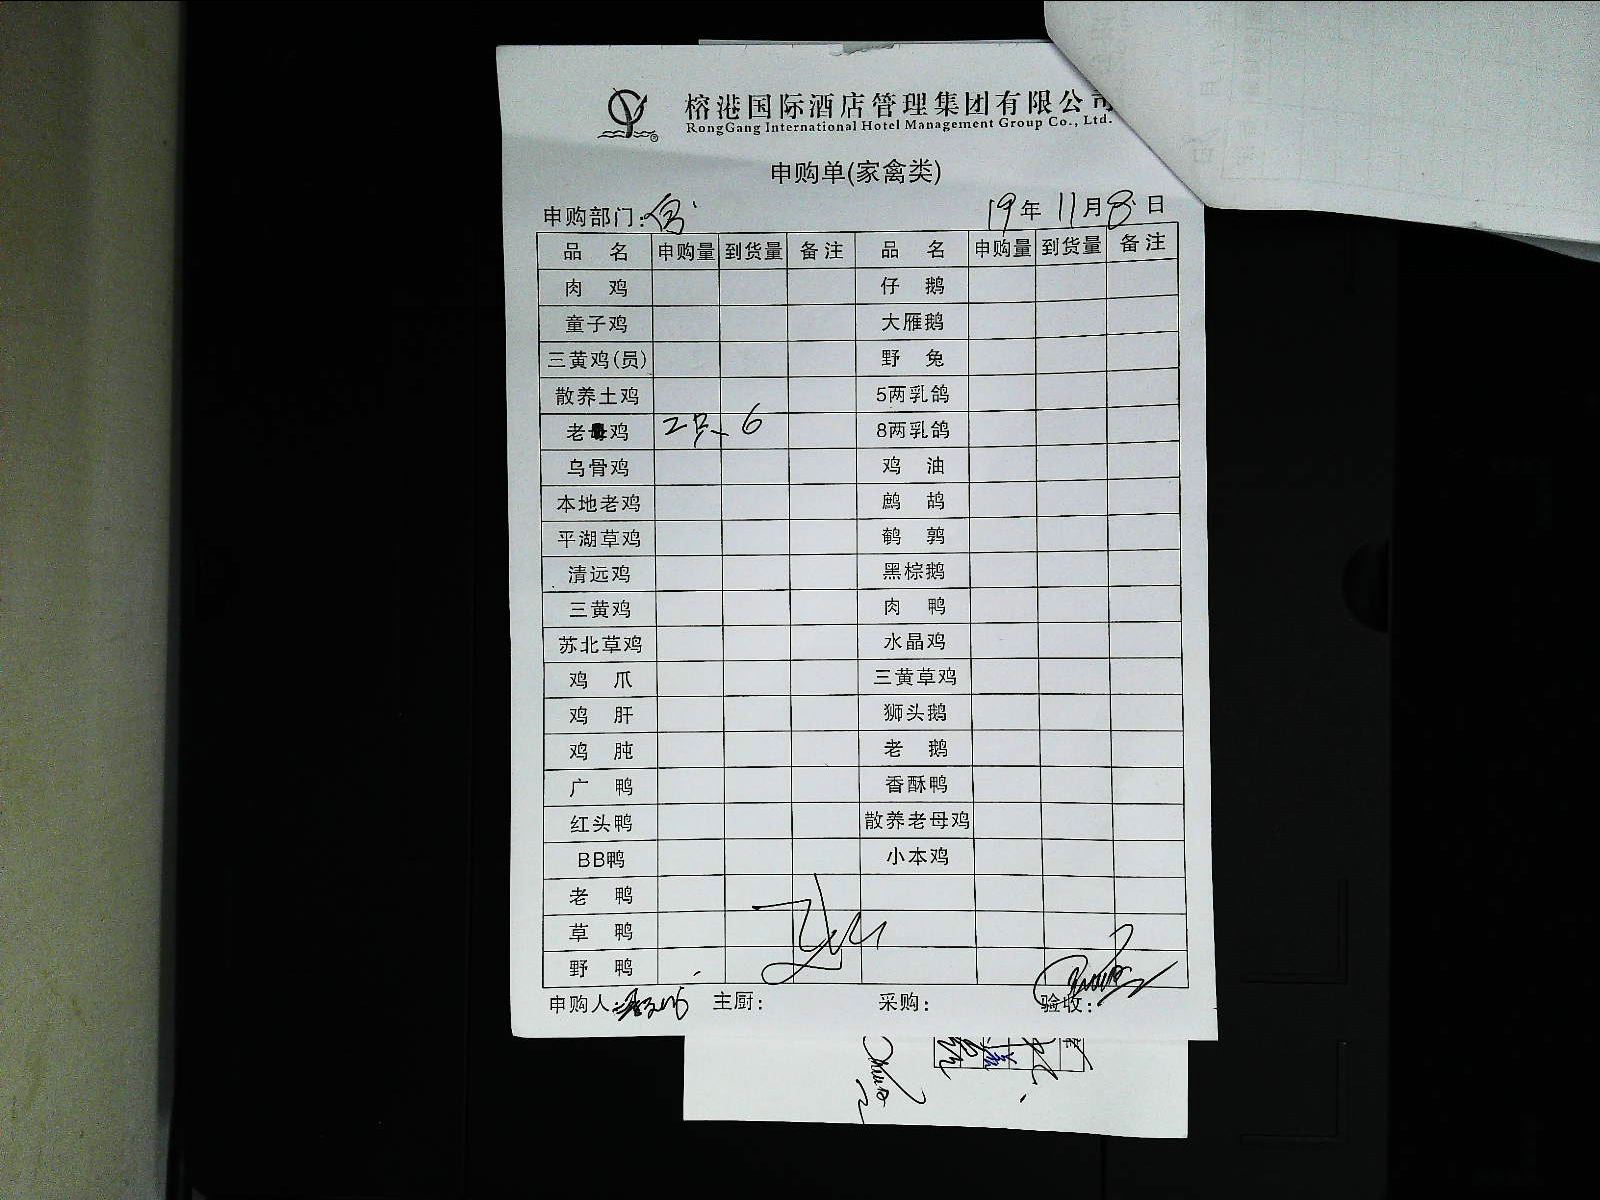 榕港国际酒店管理集团有限公司
RongGang International Hotel Management Group Co., Ltd.
申购单(家禽类)
申购部门: 19年 11月 8日
品 名 申购量 到货量 备注 品 名 申购量 到货量 备注
肉 鸡 仔 鹅
童子鸡 大雁鹅
三黄鸡(员) 野 兔
散养土鸡 5两乳鸽
老母鸡 2只 6 8两乳鸽
乌骨鸡 鸡 油
本地老鸡 鹧 鸪
平湖草鸡 鹌 鹑
清远鸡 黑棕鹅
三黄鸡 肉 鸭
苏北草鸡 水晶鸡
鸡 爪 三黄草鸡
鸡 肝 狮头鹅
鸡 肫 老 鹅
广 鸭 香酥鸭
红头鸭 散养老母鸡
BB鸭 小本鸡
老 鸭
草 鸭
野 鸭
申购人: 主厨: 采购: 验收: